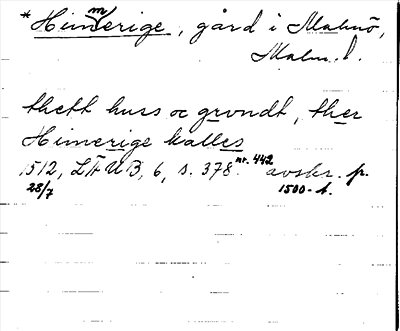 * Himmerige, gård i Malmö,
Malm. l.
thett huss oc grvndt, ther
Himerige kalles
1512, LÄUB, 6, s. 378. nr. 442 avskr. p.
28/7 1500-t.